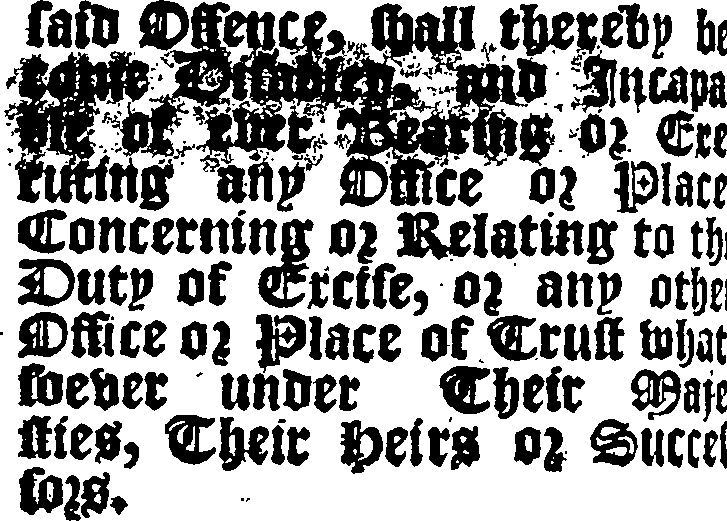 ſaid Offence, ſhall thereby be
come Diſabled, and Incapa
ble of ever Bearing or Exe
cuting any Office or Place
Concerning or Relating to the
Duty of Exciſe, or any other
Office or Place of Truſt what
ſoever under Their Maje
ſties, Their Heirs or Succeſ
ſors.